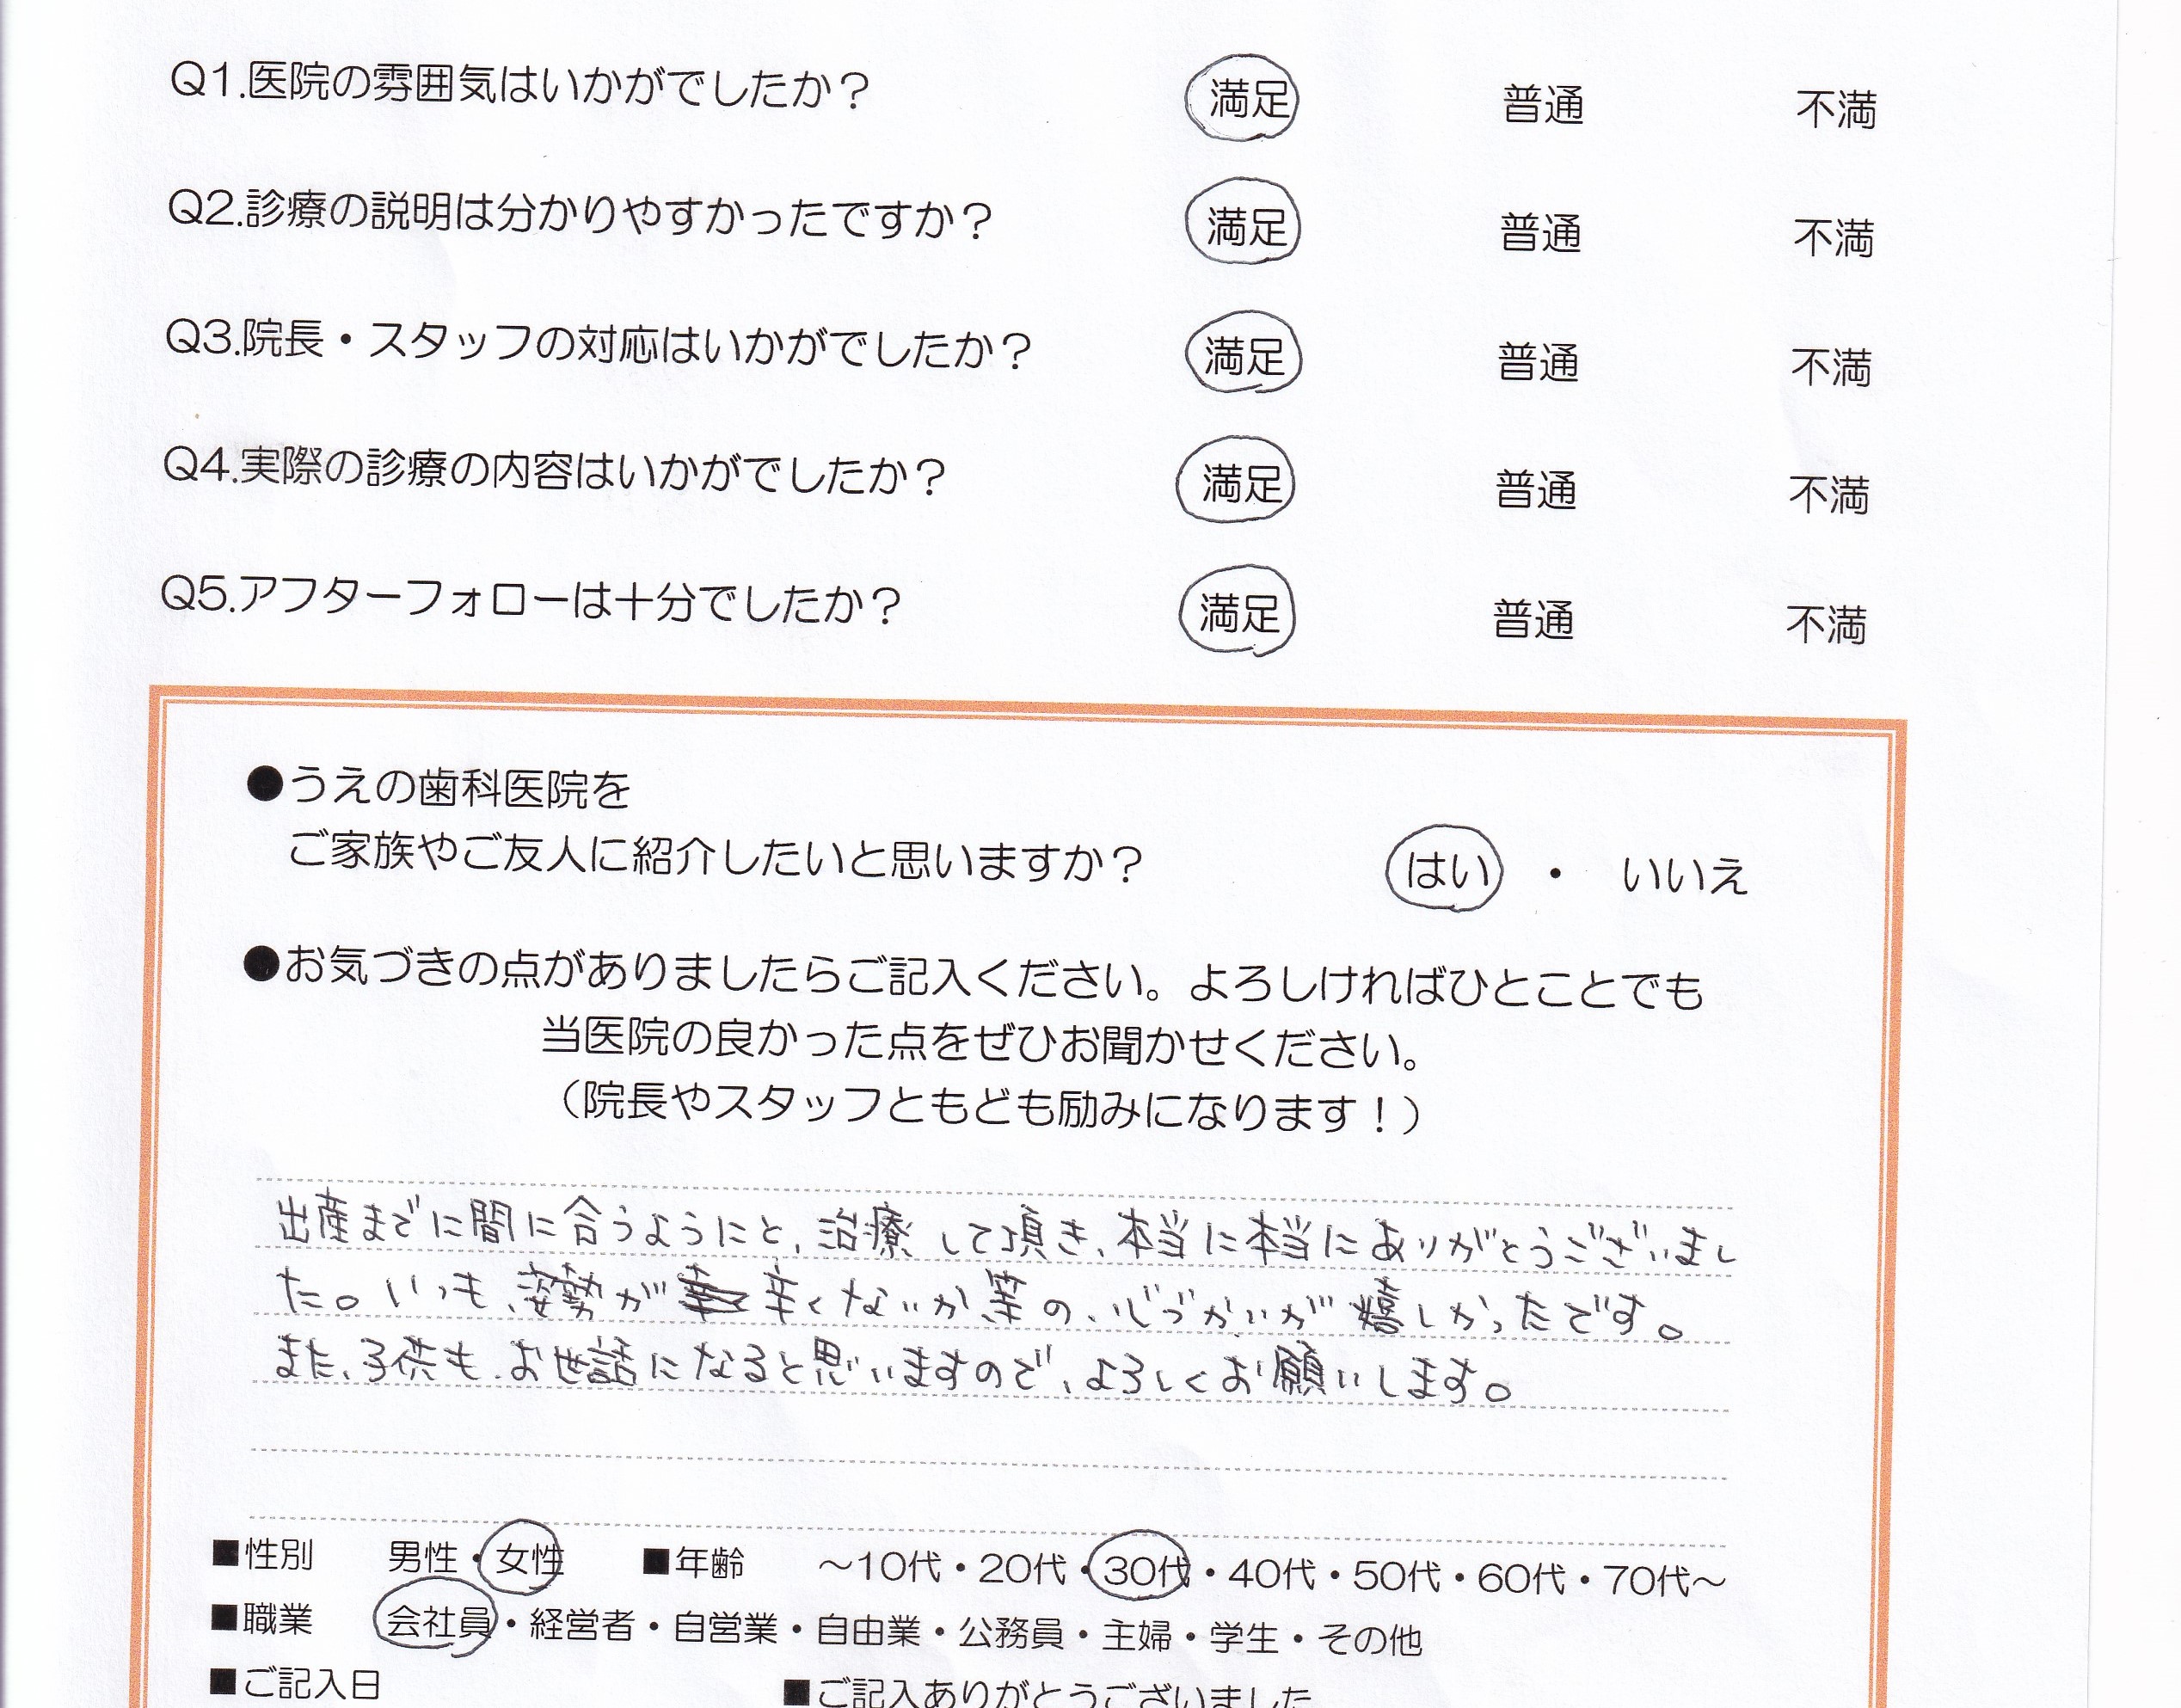 Q1.医院の雰囲気はいかがでしたか？ 満足 普通 不満
Q2.診療の説明は分かりやすかったですか？ 満足 普通 不満
Q3.院長・スタッフの対応はいかがでしたか？ 満足 普通 不満
Q4.実際の診療の内容はいかがでしたか？ 満足 普通 不満
Q5.アフターフォローは十分でしたか？ 満足 普通 不満
●うえの歯科医院を
ご家族やご友人に紹介したいと思いますか？ はい ・ いいえ
●お気づきの点がありましたらご記入ください。よろしければひとことでも
当医院の良かった点をぜひお聞かせください。
（院長やスタッフともども励みになります！）
出産までに間に合うようにと、治療して頂き、本当に本当にありがとうございまし
た。いつも、姿勢が辛くないか等の、心づかいが嬉しかったです。
また、子供も、お世話になると思いますので、よろしくお願いします。
■性別 男性・女性 ■年齢 ～10代・20代・30代・40代・50代・60代・70代～
■職業 会社員・経営者・自営業・自由業・公務員・主婦・学生・その他
■ご記入日 ■ご記入ありがとうございました